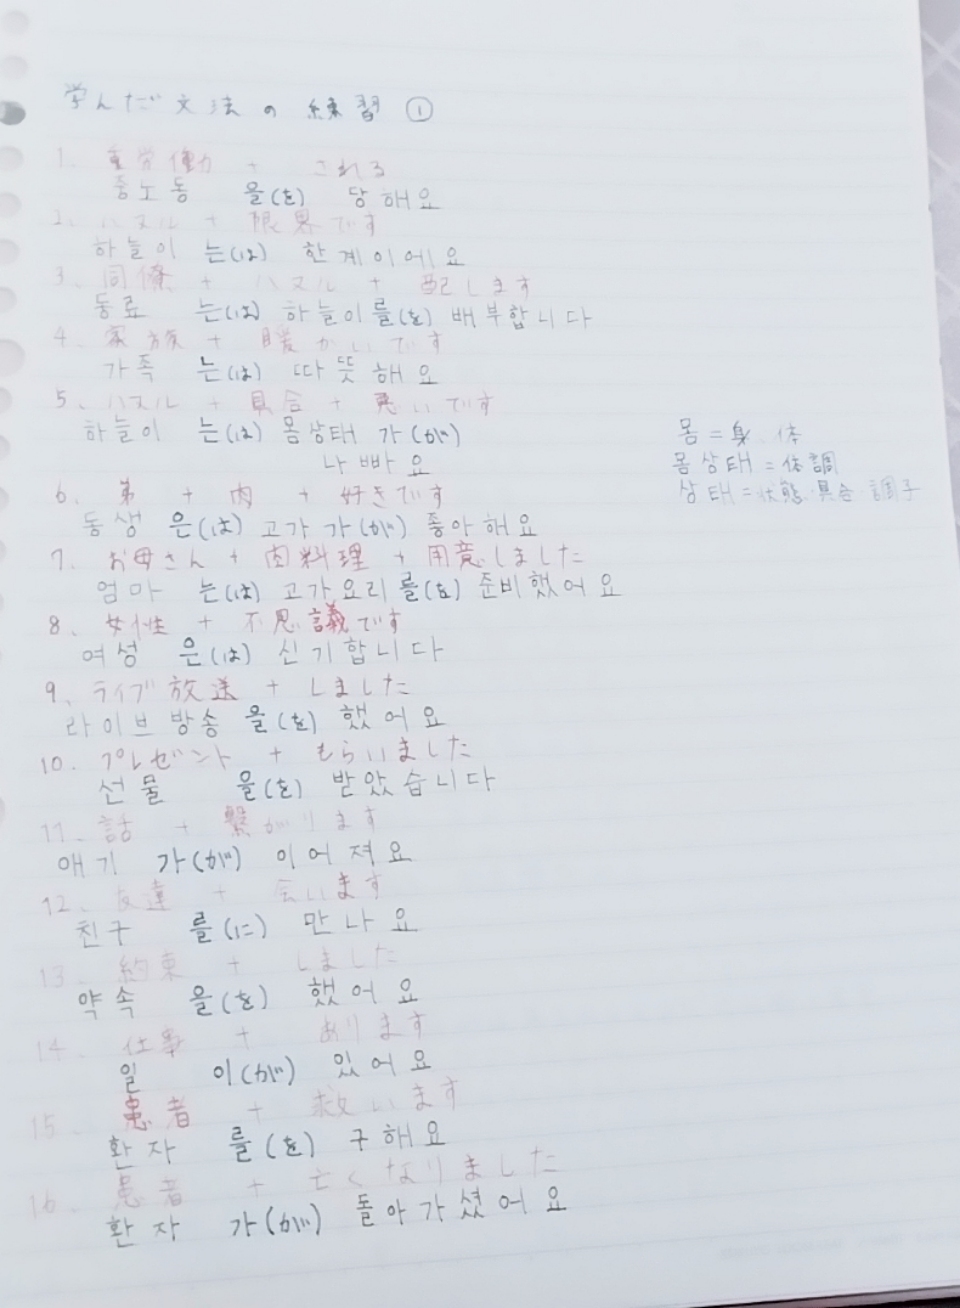 学んだ文法の練習①
1. 重労働 + される
중노동 을(を) 당해요
2. ハヌル + 限界です
하늘이 는(は) 한계이에요
3. 同僚 + ハヌル + 配します
동료 는(は) 하늘이를(を) 배부합니다
4. 家族 + 暖かいです
가족 는(は) 따뜻해요
5. ハヌル + 具合 + 悪いです
하늘이 는(は) 몸상태 가(が)
나빠요
몸=身体
몸상태=体調
상태=状態・具合・調子
6. 弟 + 肉 + 好きです
동생 은(は) 고가 가(が) 좋아해요
7. お母さん + 肉料理 + 用意しました
엄마 는(は) 고가요리 를(を) 준비했어요
8. 女性 + 不思議です
여성 은(は) 신기합니다
9. ライブ放送 + しました
라이브방송 을(を) 했어요
10. プレゼント + もらいました
선물 을(を) 받았습니다
11. 話 + 繋がります
얘기 가(が) 이어져요
12. 友達 + 会います
친구 를(に) 만나요
13. 約束 + しました
약속 을(を) 했어요
14. 仕事 + あります
일 이(が) 있어요
15. 患者 + 救います
환자 를(を) 구해요
16. 患者 + 亡くなりました
환자 가(が) 돌아가셨어요